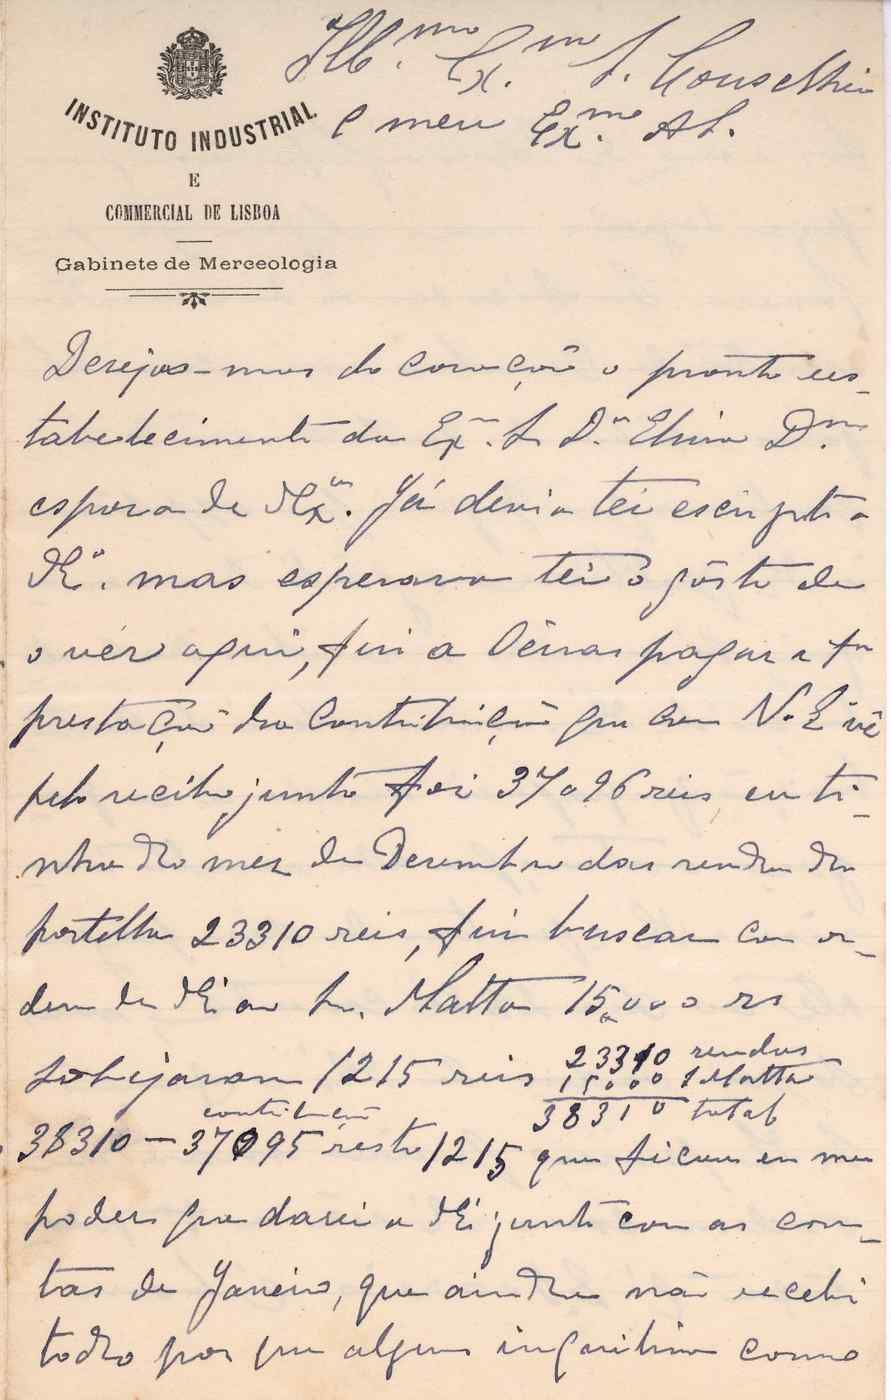 INSTITUTO INDUSTRIAL
E
COMMERCIAL DE LISBOA
Gabinete de Merceologia
Ill.mo Ex.mo S. Conselheiro
e meu Ex.mo
Desejas-mos do coração o pronto res-
tabelecimento da Ex.ma S. D.a Elvira
esposa de Ex.a. Já devia ter escripto a
V.E.a. mas esperava ter o gôsto de
o vêr aqui, fui a Oeiras pagar a 1a
prestação da contribuição que como V. Ea vê
pelo recibo junto foi 37096 reis, eu ti-
nha do mez de Desembro das rendas da
portella 23310 reis, fui buscar com or-
dem de V.E. ao Sr. Matta 15.000 rs
Sobejaram 1215 reis
23310 rendas
15000 S Matta
38310 total
contribuição
38310 - 37095 resto 1215 que ficou em meu
poder que darei a V.E. junto com as con-
tas de Janeiro, que ainda não recebi
todo por que alguns inquilinos como